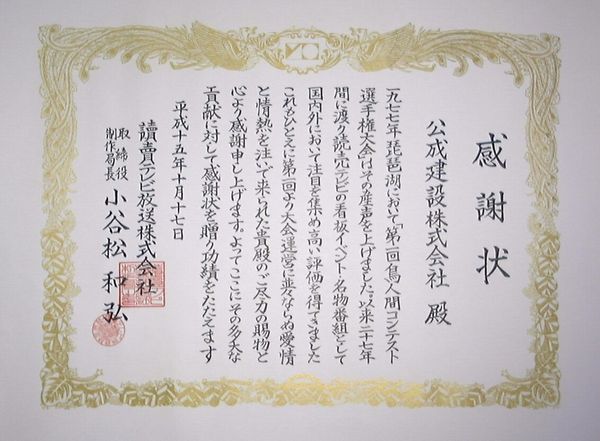 感謝状
公成建設株式会社 殿
一九七七年 琵琶湖において「第一回鳥人間コンテスト
選手権大会」はその産声を上げました。以来二十七年
間に渡り読売テレビの看板イベント・名物番組として
国内外において注目を集め高い評価を得てきました
これもひとえに第一回より大会運営に並々ならぬ愛情
と情熱を注いで来られた貴殿のご尽力の賜物と
心より感謝申し上げます。よってここにその多大な
貢献に対して感謝状を贈り功績をたたえます
平成十五年十月十七日
讀賣テレビ放送株式会社
取締役
制作局長
小谷松 和弘